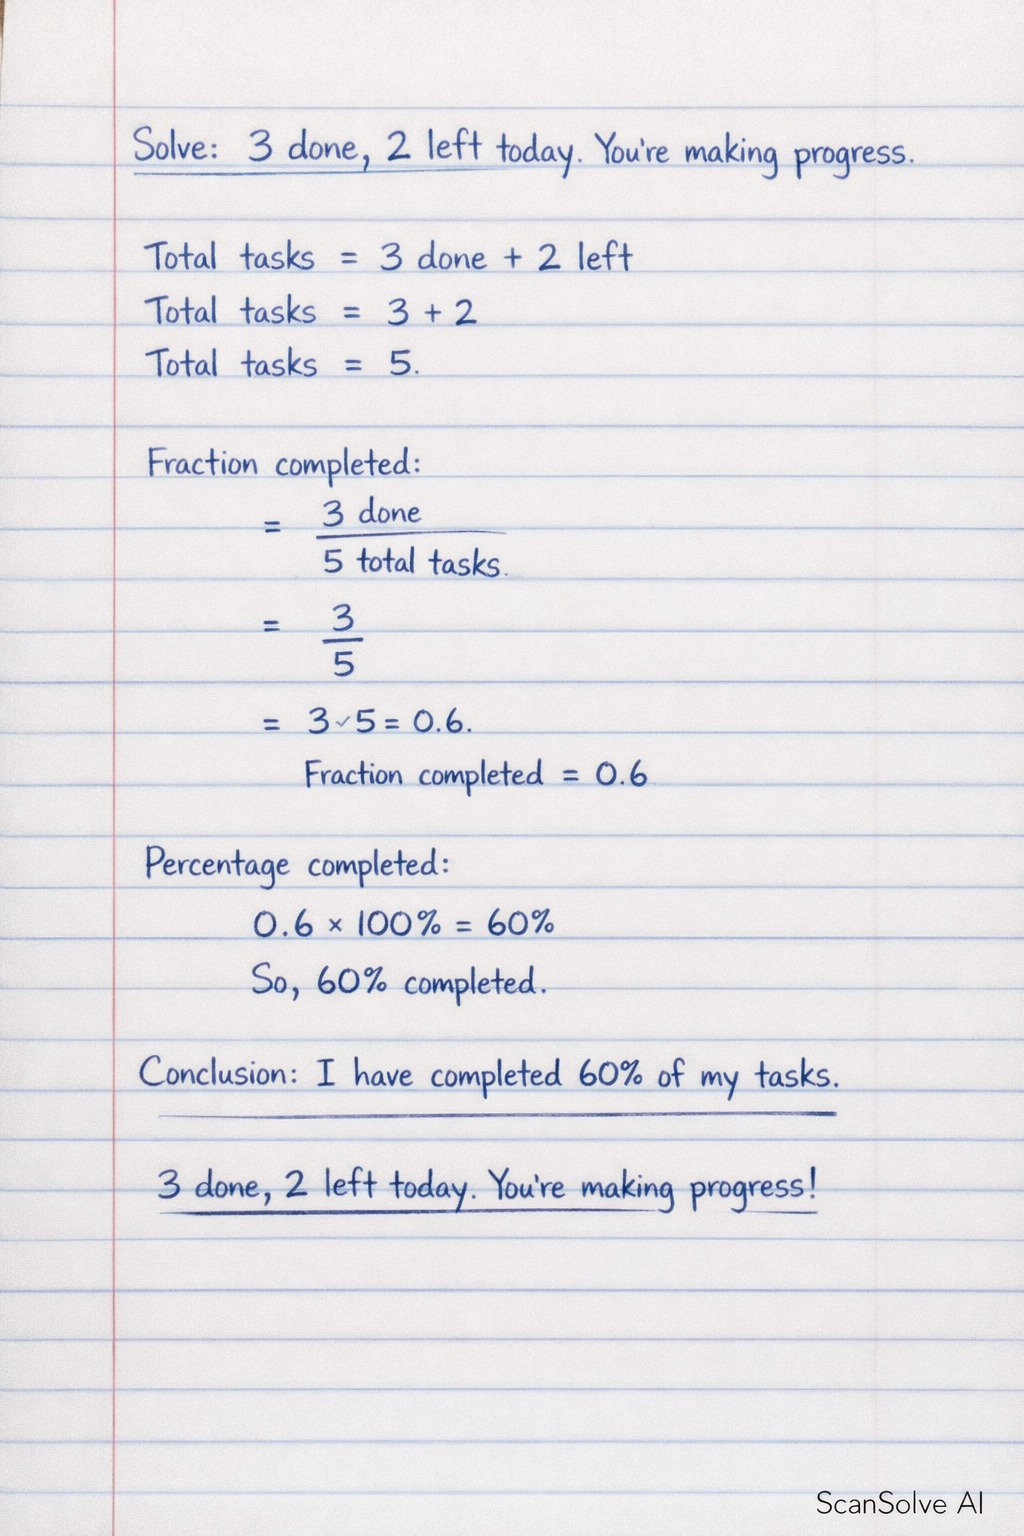 Solve: 3 done, 2 left today. You're making progress.
Total tasks = 3 done + 2 left
Total tasks = 3 + 2
Total tasks = 5.
Fraction completed:
= 3 done
5 total tasks.
= 3
5
= 3 ✓ 5 = 0.6.
Fraction completed = 0.6
Percentage completed:
0.6 × 100% = 60%
So, 60% completed.
Conclusion: I have completed 60% of my tasks.
3 done, 2 left today. You're making progress!
ScanSolve AI